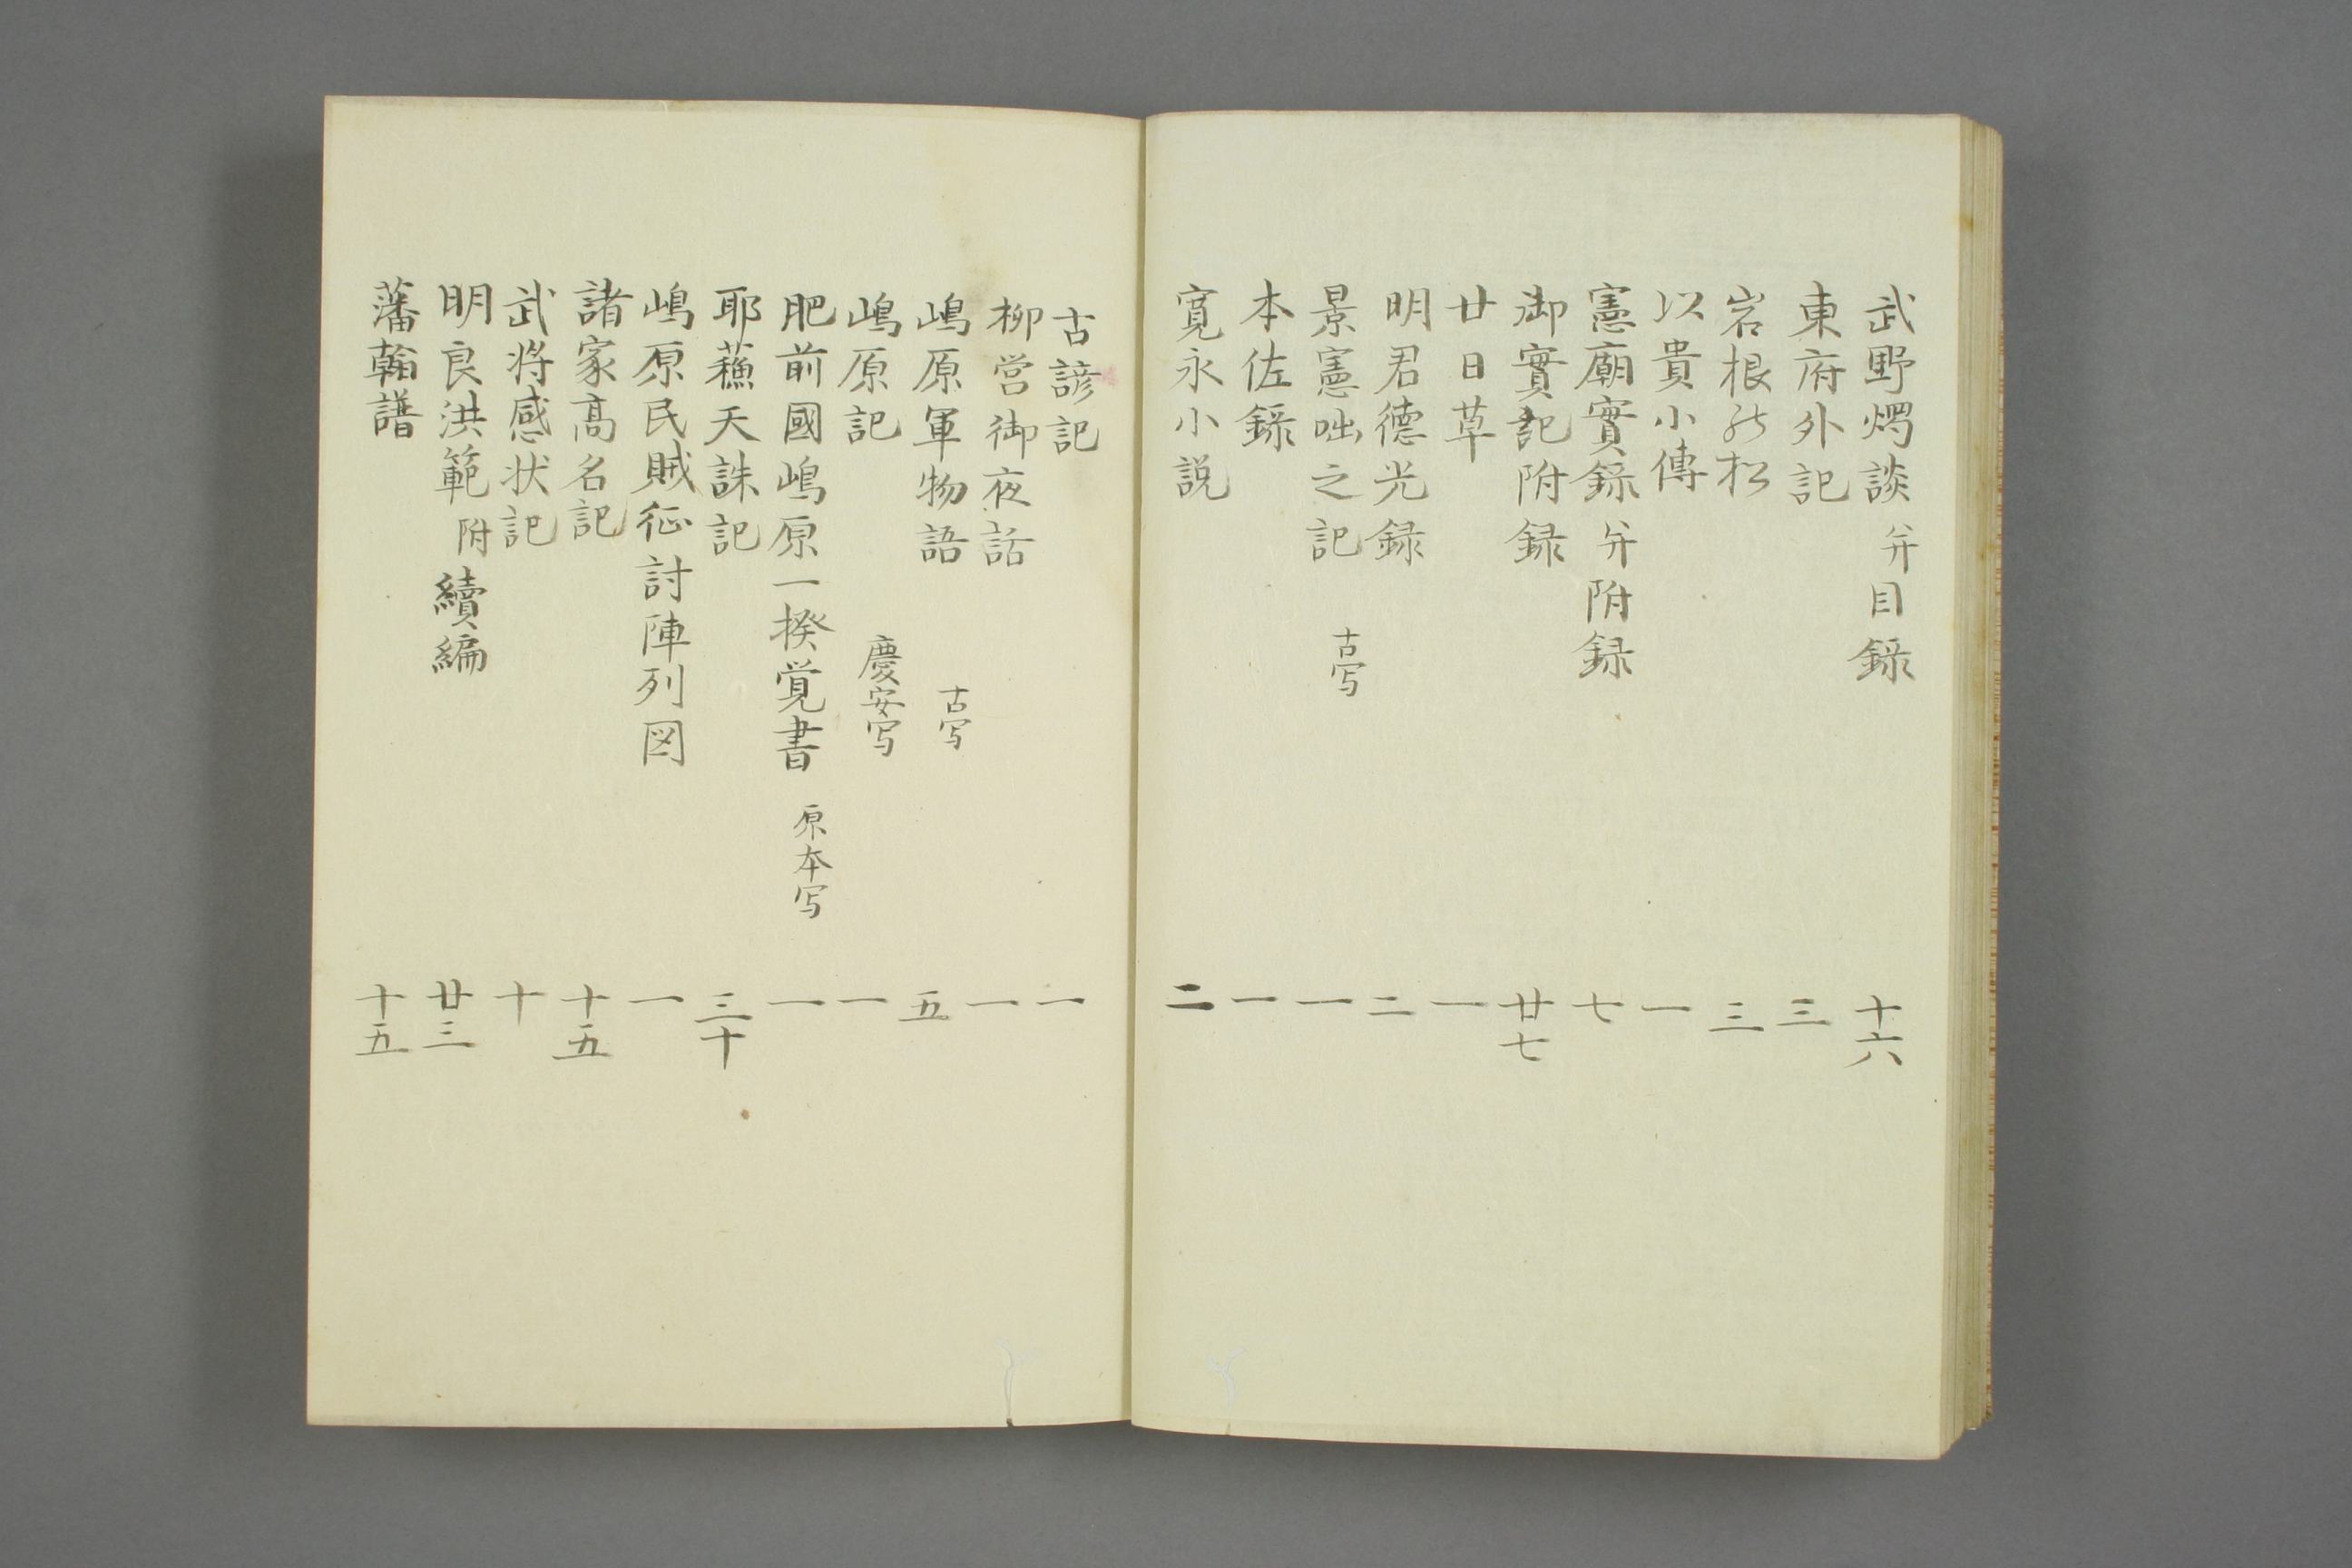 武野燭談 并目録 十六
東府外記 三
岩根の松 三
以貴小傳 一
憲廟實録 并附録 七
御實記附録 廿七
廿日草 一
明君徳光録 二
景憲咄之記 古写 一
本佐録 一
寛永小説 二
古諺記 一
柳営御夜話 一
嶋原軍物語 古写 五
嶋原記 慶安写 一
肥前國嶋原一揆覚書 原本写 一
耶蘓天誅記 三十
嶋原民賊征討陣列図 一
諸家髙名記 十五
武将感状記 十
明良洪範 附續編 廿三
藩翰譜 十五